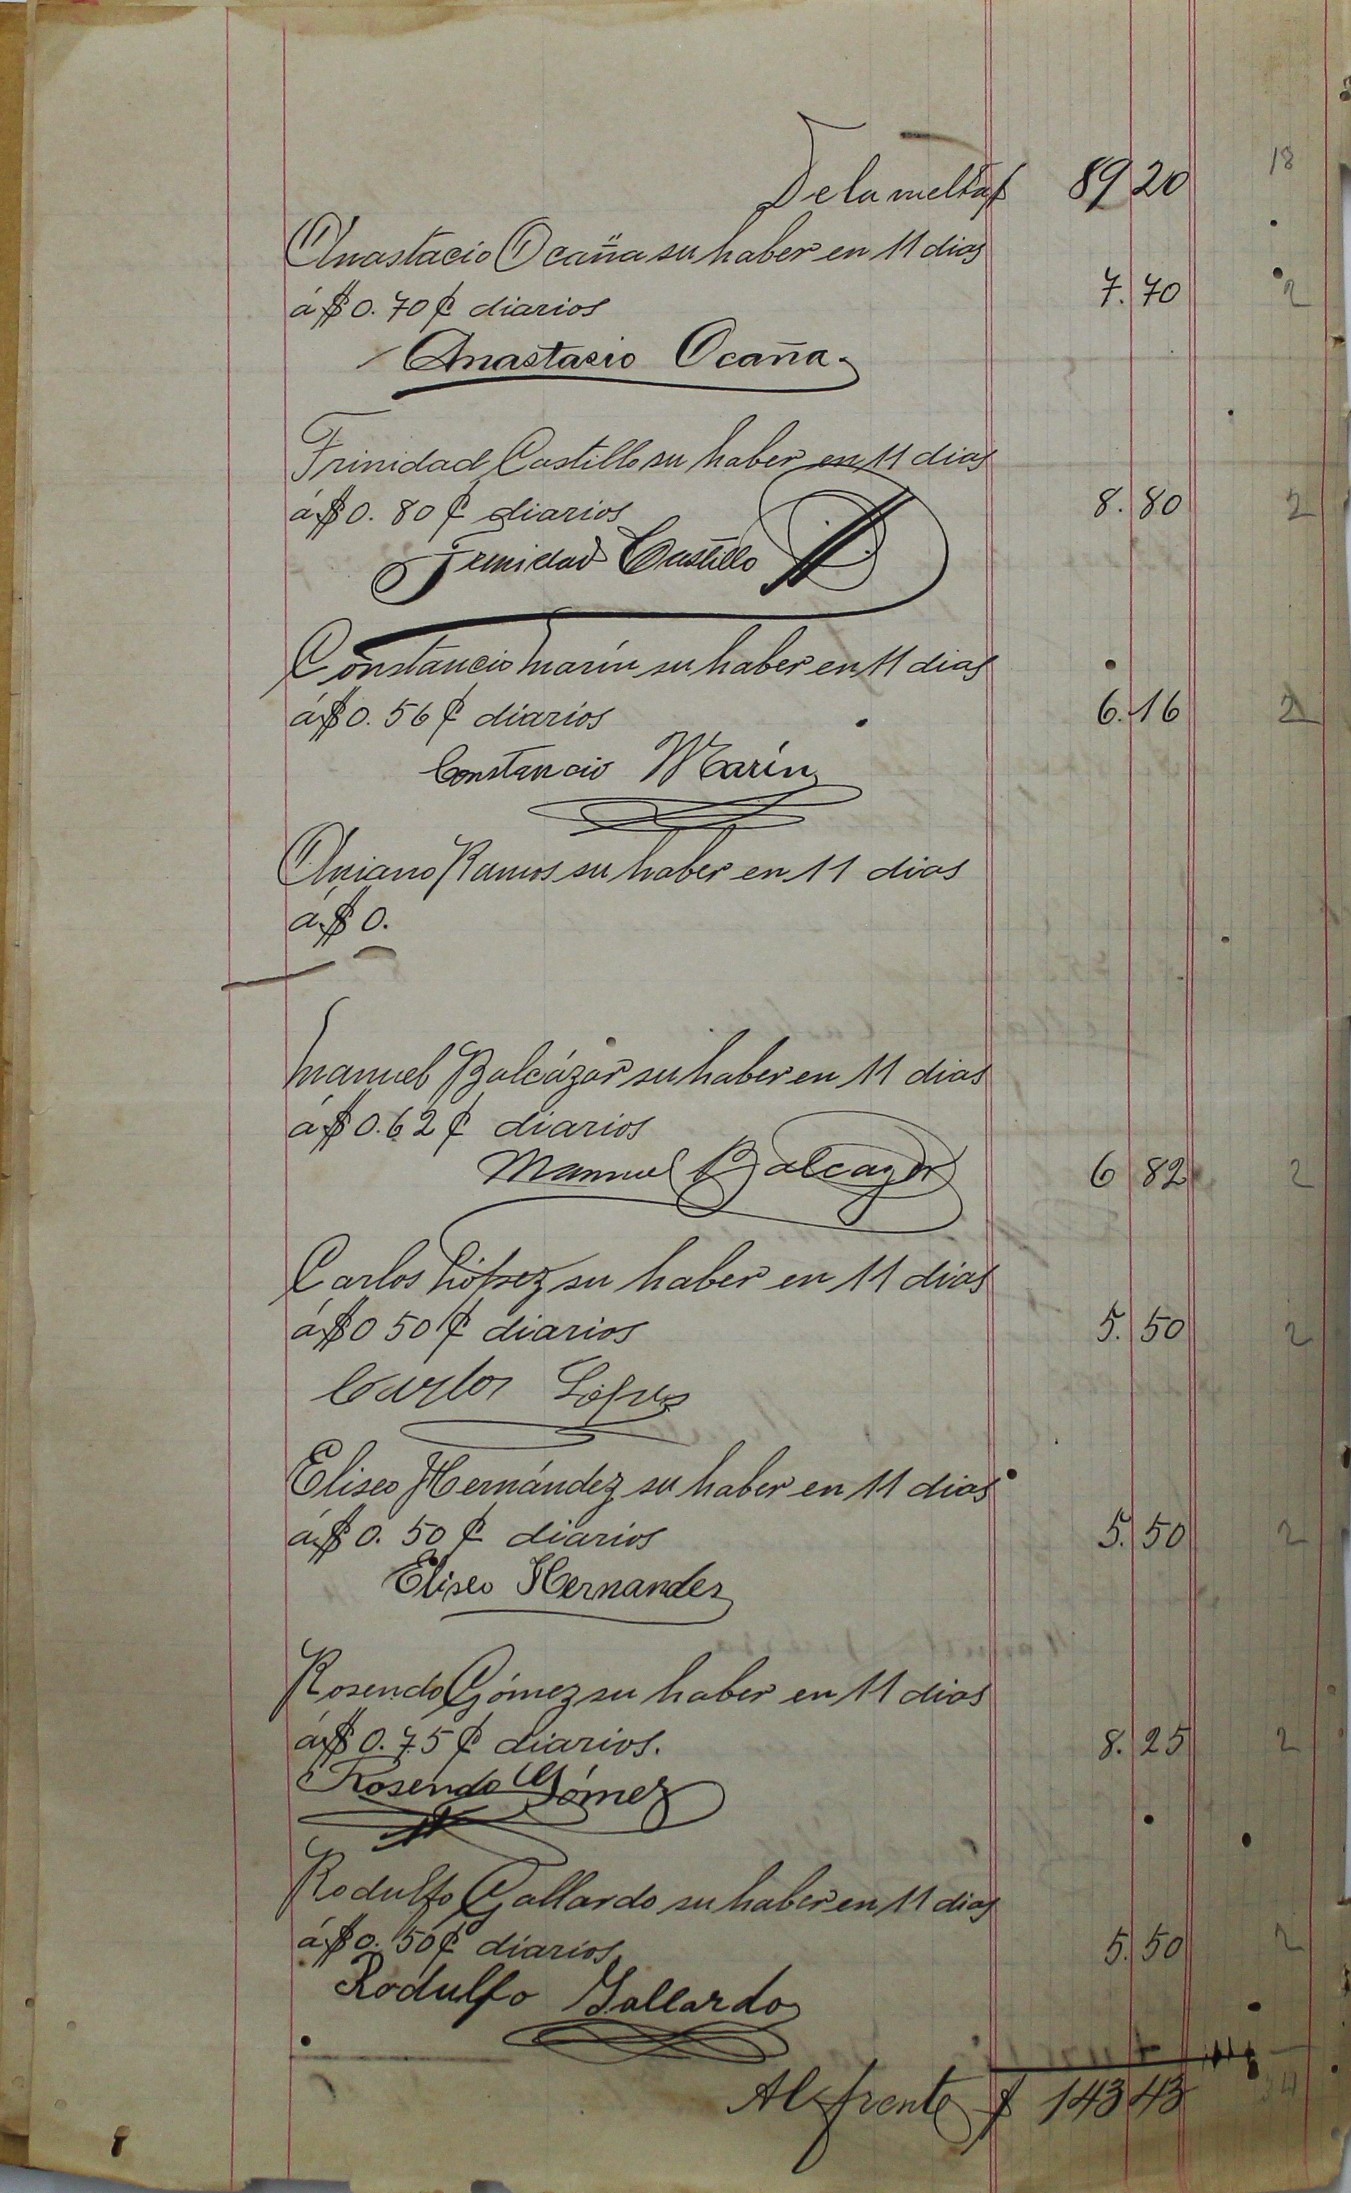 De la vuelta $ 89 20
18
Anastacio Ocaña su haber en 11 dias
á $ 0. 70 ¢ diarios 7. 70 2
Anastasio Ocaña
Trinidad Castillo su haber en 11 dias
á $ 0. 80 ¢ diarios 8. 80 2
Trinidad Castillo
Constancio Marín su haber en 11 dias
á $ 0. 56 ¢ diarios 6. 16 2
Constancio Marín
Aniano Ramos su haber en 11 dias
á $ 0.
Manuel Balcázar su haber en 11 dias
á $ 0. 62 ¢ diarios
Manuel Balcazar 6 82 2
Carlos López su haber en 11 dias
á $ 0 50 ¢ diarios 5. 50 2
Carlos López
Eliseo Hernández su haber en 11 dias
á $ 0. 50 ¢ diarios 5. 50 2
Eliseo Hernandez
Rosendo Gómez su haber en 11 dias
á $ 0. 75 ¢ diarios. 8. 25 2
Rosendo Gómez
Rodulfo Gallardo su haber en 11 dias
á $ 0. 50 ¢ diarios 5. 50 2
Rodulfo Gallardo
Al frente $ 143 43